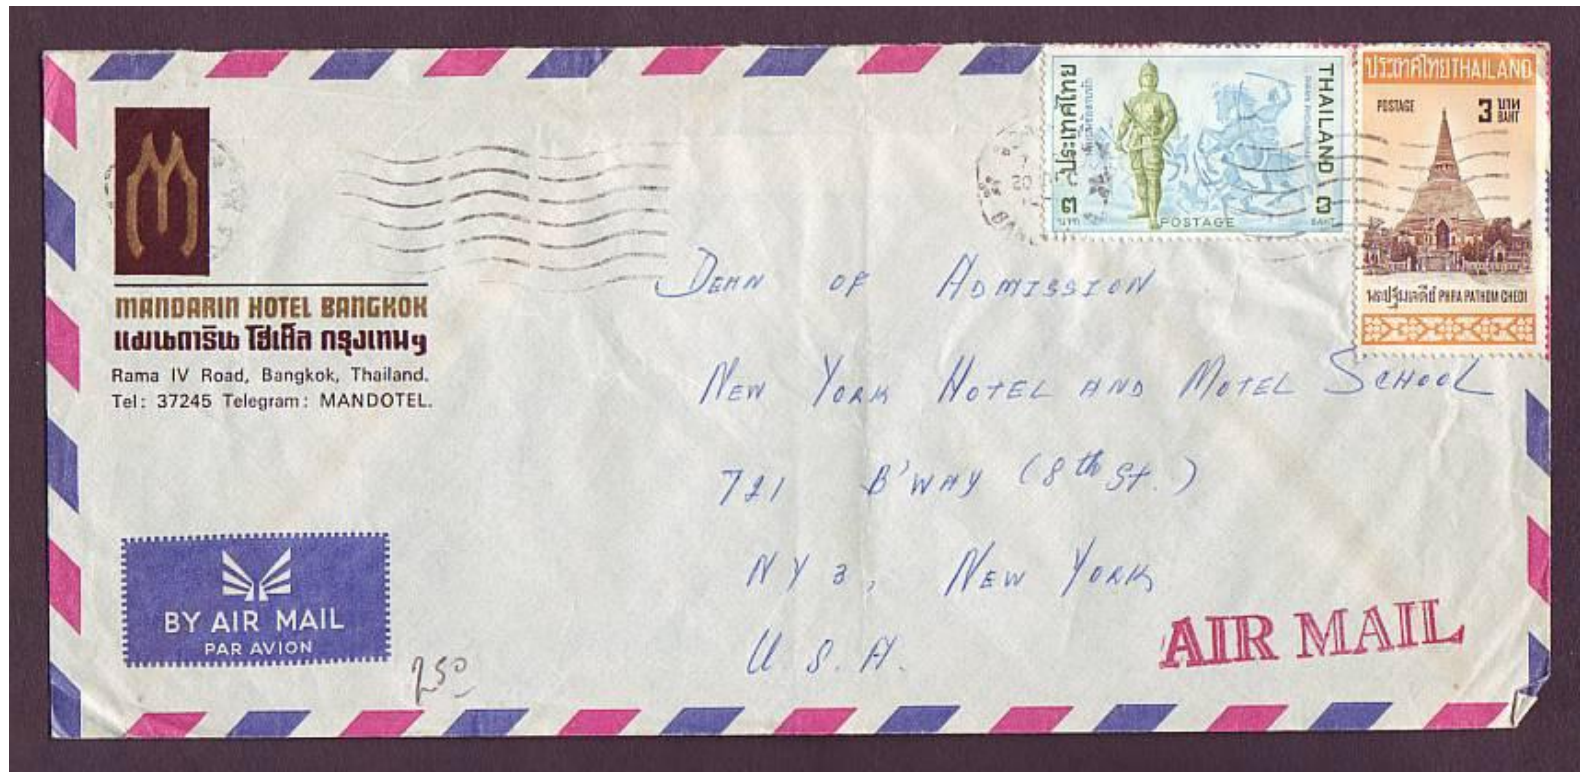 MANDARIN HOTEL BANGKOK
แมนดาริน โฮเต็ล กรุงเทพฯ
Rama IV Road, Bangkok, Thailand.
Tel: 37245 Telegram: MANDOTEL.
ประเทศไทย
THAILAND
๓ บาท
POSTAGE
3 BAHT
ประเทศไทย THAILAND
POSTAGE
3 บาท BAHT
พระปฐมเจดีย์ PHRA PATHOM CHEDI
DEAN OF ADMISSION
NEW YORK HOTEL AND MOTEL SCHOOL
721 B'WAY (8th St.)
NY 3, NEW YORK
U.S.A.
BY AIR MAIL
PAR AVION
250
AIR MAIL